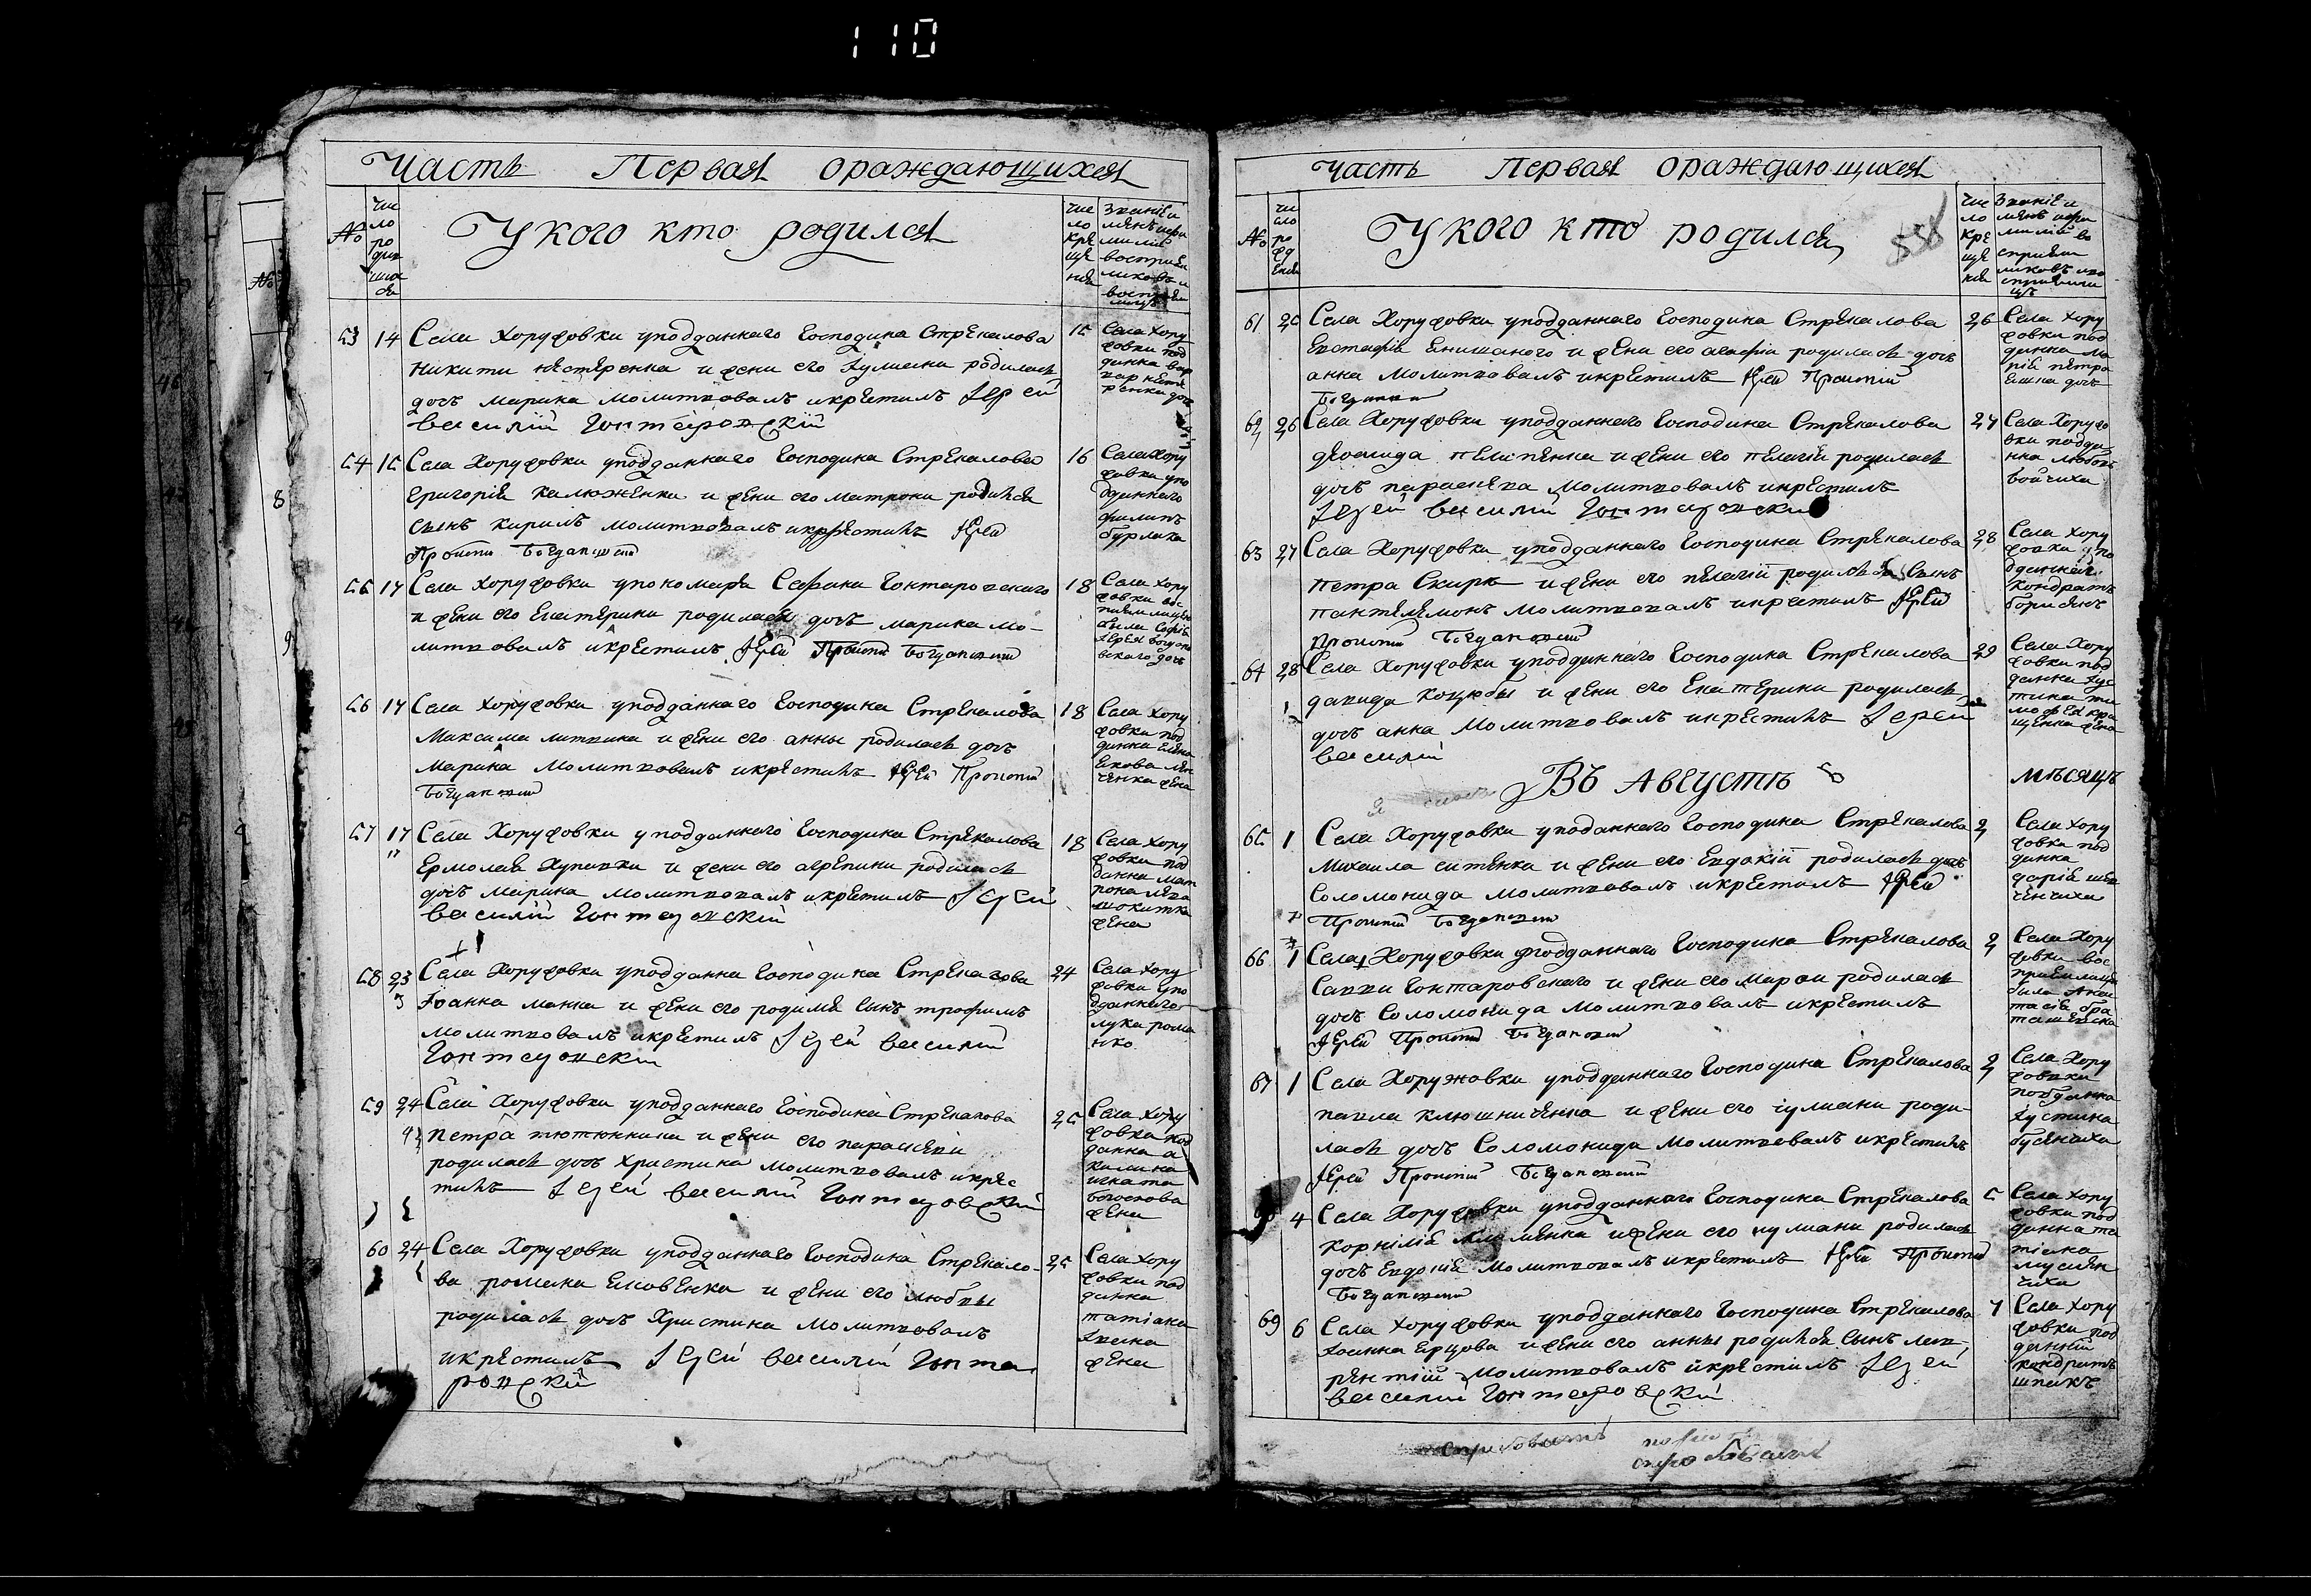 110
Часть Первая ораждающихся
№
чис
ло
ро
див
ших
ся
У кого кто родился
чис
ло
кре
ще
нія
званіе и
имянъ и фа
милія
воспріем
никовъ и
воспріем
ницъ
53 14 Села Хоружовки уподданнаго Господина Стрекалова
Никити нестеренка и жени его Іулиани родилась
дочь марина молитвовалъ икрестилъ Іерей
василій Гонтаровскій
15
Села Хору
жовки под
данна вар
вар несте
ренка доч
54 15 Села Хоружовки уподданнаго Господина Стрекалова
Григорія калюженка и жени его матрони родился
сынъ кирилъ молитвовалъ икрестилъ Іерей
Прокопій Богдановскій
16
Села Хору
жовки упо
дданнаго
филипъ
бурлака
55 17 Села Хоружовки упономаря Стефана Гонтаровскаго
и жени его Екатерини родилася дочь марина мо-
литвовалъ икрестилъ Іерей Прокопій Богдановскій
18
Села Хору
жовки вос
пріемницею
была Софія
Іерея богдано
вскаго дочь
56 17 Села Хоружовки уподданнаго Господина Стрекалова
Максима литвина и жени его анны родилась дочь
Марина Молитвовалъ икрестилъ Іерей Прокопій
Богдановскій
18
Села Хору
жовки под
данна Елена
жена
57 17 Села Хоружовки уподданнаго Господина Стрекалова
Ермолая Хупавки и жени его агрепини родилась
дочь марина молитвовалъ икрестилъ Іерей
василій Гонтаровскій
18
Села Хору
жовки под
данна мат
рона
жена
58 23 Села Хоружовки уподданна Господина Стрекалова
Іоанна манка и жени его родился сынъ трофимъ
молитвовалъ икрестилъ Іерей василій
Гонтаровскій
24
Села Хору
жовки упо
дданнаго
лука рома
нко
59 24 Села Хоружовки уподданнаго Господина Стрекалова
петра тютюнника и жени его параскеви
родилась дочь христина молитвовалъ икрес
тилъ Іерей василій Гонтаровскій
25
Села Хору
жовки под
данна а
килина
игната
жена
60 24 Села Хоружовки уподданнаго Господина Стрекало-
ва романа Еиовенка и жени его любвы
родилась дочь Христина Молитвовалъ
икрестилъ Іерей василій Гонта
ровскій
25
Села Хору
жовки под
данна
татіана
жена
Часть Первая ораждающихся
№
чи
сло
ро
жд
енія
У кого кто родился
558
чис
ло
кре
ще
нія
Званіе и
имянъ и фа
милій во
спріем
никовъ ивос
пріемни
цъ
61 25 Села Хоружовки уподданнаго Господина Стрекалова
Евстафія и жени его агафіи родилась дочь
анна молитвовалъ икрестилъ Іерей Прокопій
Богдановскій
26
Села Хору
жовки под
данна Ма
рія петро
дочь
62 26 Села Хоружовки уподданнаго Господина Стрекалова
леонида пелипенка и жени его пелагіи родилась
дочь параскева молитвовалъ икрестилъ
Іерей василій Гонтаровскій
27
Села Хоружо
вки подда
нна любовъ
войчиха
63 27 Села Хоружовки уподданнаго Господина Стрекалова
петра Скирк и жени его пелагіи родился Сынъ
пантелемонъ молитвовалъ икрестилъ Іерей
Прокопій Богдановскій
28
Села Хору
жовки упо
дданнаго
Кондратъ
борисенъ
64 28 Села Хоружовки уподданнаго Господина Стрекалова
давида коцюбы и жени его Екатерини родилась
дочь анна Молитвовалъ икрестилъ Іерей
василій
29
Села Хору
жовки под
данна Іус
тина ти
мофея кра
щенка жена
Въ Августѣ мѣсяцѣ
65 1 Села Хоружовки уподданнаго Господина Стрекалова
Михаила ситенка и жени его Евдокіи родилась дочь
Соломонида молитвовалъ икрестилъ Іерей
Прокопій Богдановскій
2
Села Хору
жовки под
данна
дарія шев
ченчиха
66 1 Села Хоружовки уподданнаго Господина Стрекалова
Саввы Гонтаровскаго и жени его Марфи родилась
дочь Соломонида молитвовалъ икрестилъ
Іерей Прокопій Богдановскій
2
Села Хору
жовки вос
пріемницею
была Анас
тасія бра
ташевска
67 1 Села Хоружовки уподданнаго Господина Стрекалова
павла ключниченка и жени его іулиани роди-
лась дочь Соломонида молитвовалъ икрестилъ
Іерей Прокопій Богдановскій
2
Села Хору
жовки
подданна
Іустина
бусенчиха
4 Села Хоружовки уподданнаго Господина Стрекалова
корнілія клименка и жени его иулиани родилась
дочь Евдокія молитвовалъ икрестилъ Іерей Прокопій
Богдановскій
5
Села Хору
жовки под
данна та
тіана
мусіен
чиха
69 6 Села Хоружовки уподданнаго Господина Стрекалова
Іоанна Ерцова и жени его анны родился сынъ лав
рентій молитвовалъ икрестилъ Іерей
василій Гонтаровскій
7
Села Хору
жовки под
данній
кондратъ
шпакъ